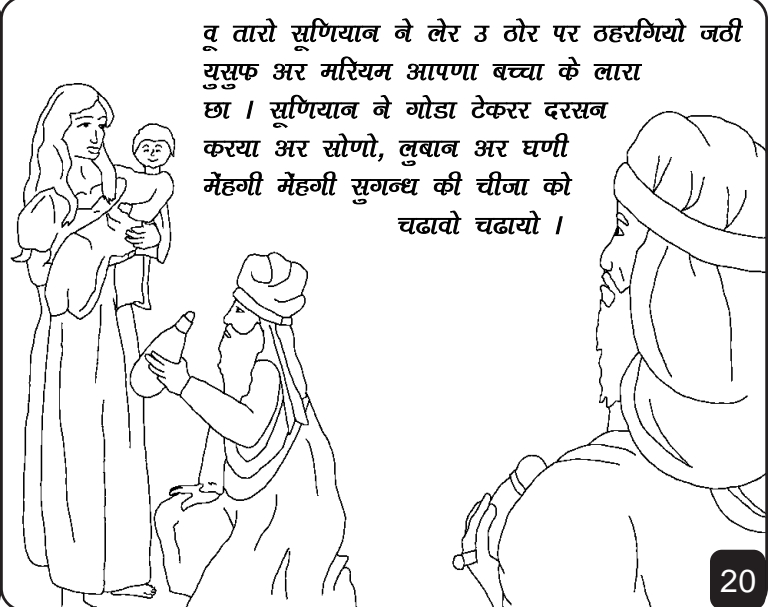 वू तारो सूणियान ने लेर उ ठोर पर ठहरगियो जठी
युसुफ अर मरियम आपणा बच्चा के लारा
छा । सूणियान ने गोडा टेकरर दरसन
करया अर सोणो, लुबान अर घणी
मेंहगी मेंहगी सुगन्ध की चीजा को
चढावो चढायो ।
20